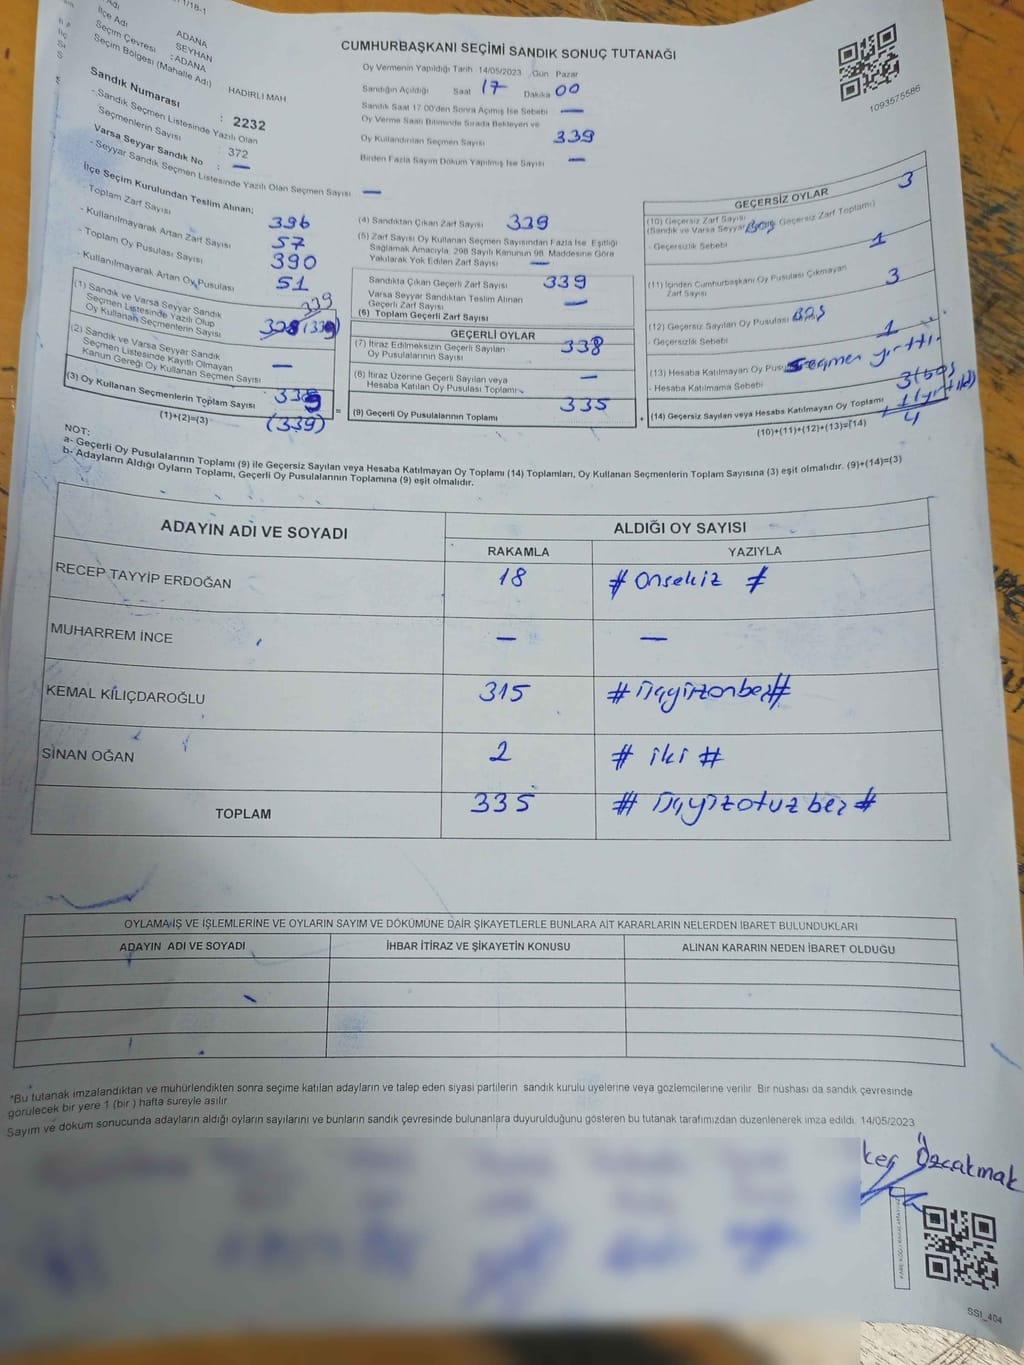 1/18-1
Adı
İlçe Adı
Seçim Çevresi
Seçim Bölgesi (Mahalle Adı)
ADANA
SEYHAN
: ADANA
HADIRLI MAH
Sandık Numarası : 2232
- Sandık Seçmen Listesinde Yazılı Olan Seçmenlerin Sayısı : 372
Varsa Seyyar Sandık No : —
- Seyyar Sandık Seçmen Listesinde Yazılı Olan Seçmen Sayısı —
CUMHURBAŞKANI SEÇİMİ SANDIK SONUÇ TUTANAĞI
Oy Vermenin Yapıldığı Tarih 14/05/2023 Gün Pazar
Sandığın Açıldığı Saat 17 Dakika 00
Sandık Saat 17.00'den Sonra Açılmış İse Sebebi —
Oy Verme Saati Bitiminde Sırada Bekleyen ve
Oy Kullandırılan Seçmen Sayısı 339
Birden Fazla Sayım Döküm Yapılmış İse Sayısı —
1093575586
İlçe Seçim Kurulundan Teslim Alınan;
- Toplam Zarf Sayısı 396
- Kullanılmayarak Artan Zarf Sayısı 57
- Toplam Oy Pusulası Sayısı 390
- Kullanılmayarak Artan Oy Pusulası 51
(1) Sandık ve Varsa Seyyar Sandık
Seçmen Listesinde Yazılı Olup
Oy Kullanan Seçmenlerin Sayısı
339
(339)
(2) Sandık ve Varsa Seyyar Sandık
Seçmen Listesinde Kayıtlı Olmayan
Kanun Gereği Oy Kullanan Seçmen Sayısı —
(3) Oy Kullanan Seçmenlerin Toplam Sayısı 339
(1)+(2)=(3) (339)
(4) Sandıktan Çıkan Zarf Sayısı 339
(5) Zarf Sayısı Oy Kullanan Seçmen Sayısından Fazla İse, Eşitliği
Sağlamak Amacıyla, 298 Sayılı Kanunun 98. Maddesine Göre
Yakılarak Yok Edilen Zarf Sayısı —
Sandıkta Çıkan Geçerli Zarf Sayısı 339
Varsa Seyyar Sandıktan Teslim Alınan
Geçerli Zarf Sayısı —
(6) Toplam Geçerli Zarf Sayısı
GEÇERLİ OYLAR
(7) İtiraz Edilmeksizin Geçerli Sayılan
Oy Pusulalarının Sayısı 338
(8) İtiraz Üzerine Geçerli Sayılan veya
Hesaba Katılan Oy Pusulası Toplamı —
= (9) Geçerli Oy Pusulalarının Toplamı 335 +
GEÇERSİZ OYLAR 3
(10) Geçersiz Zarf Sayısı
(Sandık ve Varsa Seyyar Geçersiz Zarf Toplamı)
- Geçersizlik Sebebi Boş 1
(11) İçinden Cumhurbaşkanı Oy Pusulası Çıkmayan
Zarf Sayısı 3
(12) Geçersiz Sayılan Oy Pusulası
- Geçersizlik Sebebi 1
(13) Hesaba Katılmayan Oy Pus seçmen yırttı.
- Hesaba Katılmama Sebebi 3(boş)
(14) Geçersiz Sayılan veya Hesaba Katılmayan Oy Toplamı + 1
(10)+(11)+(12)+(13)=(14) 4
NOT:
a- Geçerli Oy Pusulalarının Toplamı (9) ile Geçersiz Sayılan veya Hesaba Katılmayan Oy Toplamı (14) Toplamları, Oy Kullanan Seçmenlerin Toplam Sayısına (3) eşit olmalıdır. (9)+(14)=(3)
b- Adayların Aldığı Oyların Toplamı, Geçerli Oy Pusulalarının Toplamına (9) eşit olmalıdır.
ADAYIN ADI VE SOYADI ALDIĞI OY SAYISI
RAKAMLA YAZIYLA
RECEP TAYYİP ERDOĞAN 18 # onsekiz #
MUHARREM İNCE — —
KEMAL KILIÇDAROĞLU 315 # üçyüzonbeş #
SİNAN OĞAN 2 # iki #
TOPLAM 335 # üçyüzotuzbeş #
OYLAMA İŞ VE İŞLEMLERİNE VE OYLARIN SAYIM VE DÖKÜMÜNE DAİR ŞİKAYETLERLE BUNLARA AİT KARARLARIN NELERDEN İBARET BULUNDUKLARI
ADAYIN ADI VE SOYADI İHBAR İTİRAZ VE ŞİKAYETİN KONUSU ALINAN KARARIN NEDEN İBARET OLDUĞU
*Bu tutanak imzalandıktan ve mühürlendikten sonra seçime katılan adayların ve talep eden siyasi partilerin sandık kurulu üyelerine veya gözlemcilerine verilir. Bir nüshası da sandık çevresinde
görülecek bir yere 1 (bir) hafta süreyle asılır.
Sayım ve döküm sonucunda adayların aldığı oyların sayılarını ve bunların sandık çevresinde bulunanlara duyurulduğunu gösteren bu tutanak tarafımızdan düzenlenerek imza edildi. 14/05/2023
Özçakmak
SSI_404